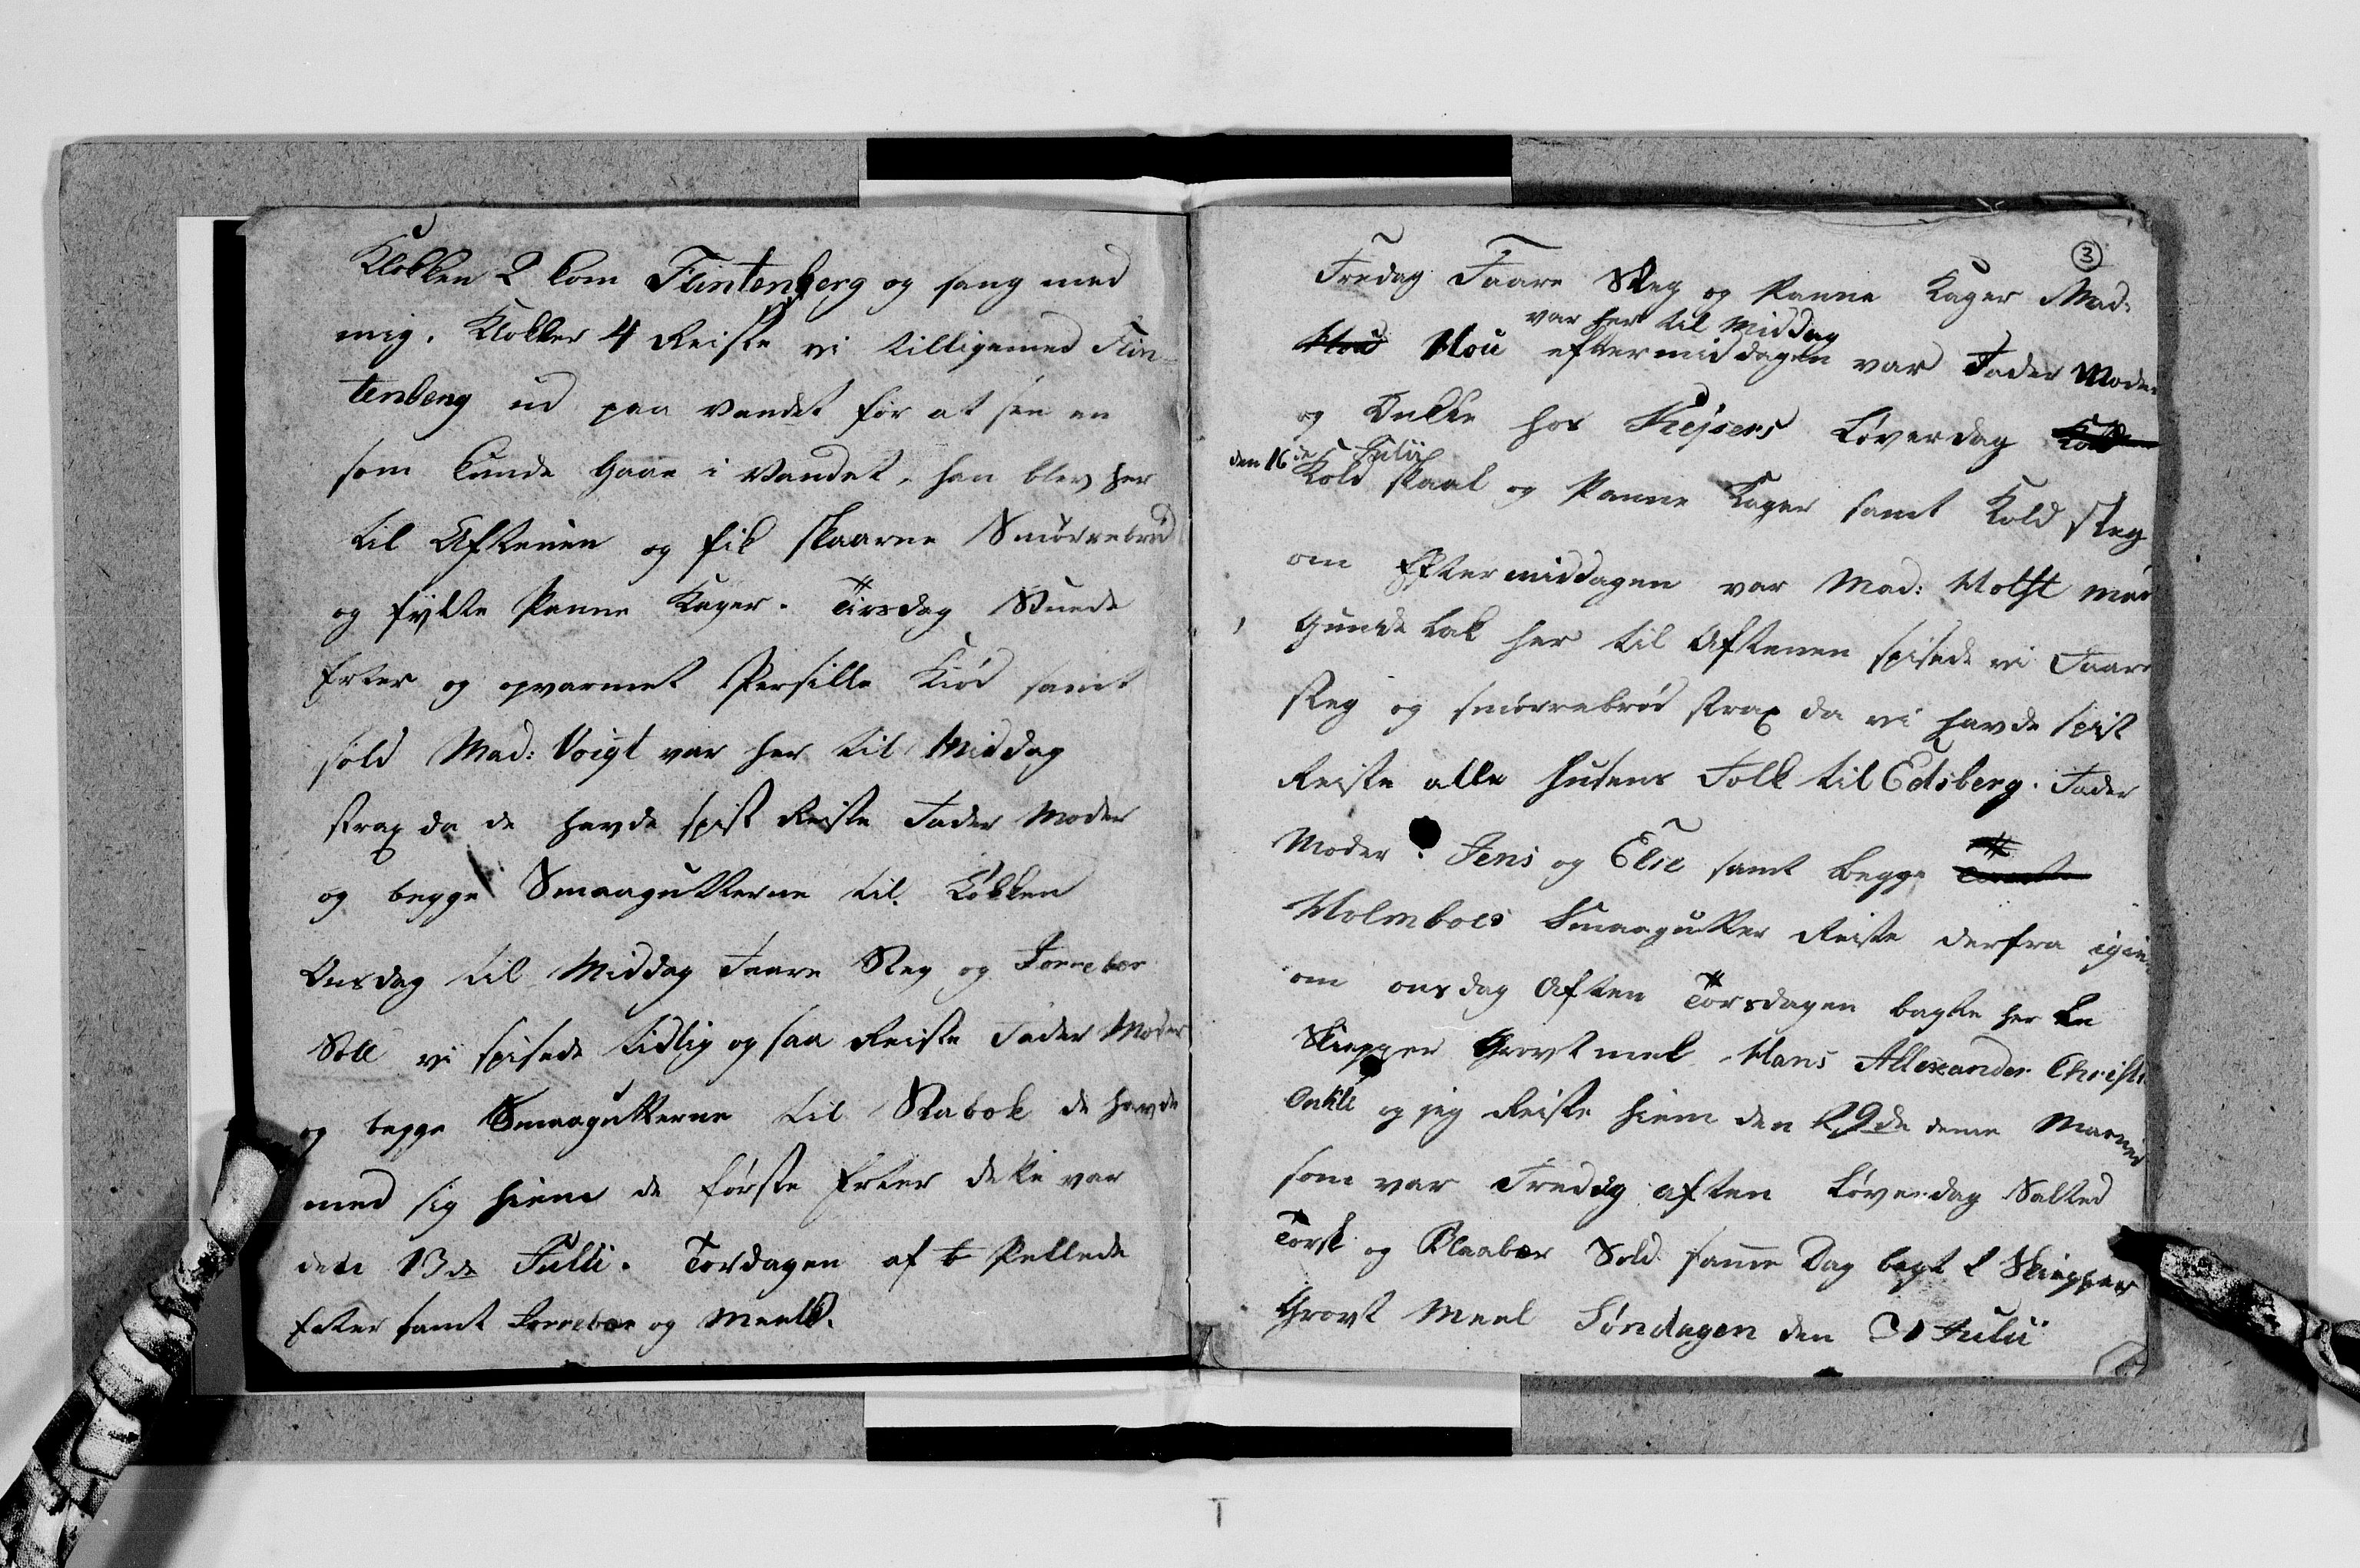 Klokken 2 kom Flintenberg og sang med
mig. Klokker 4 Reiste vi tilligemed Flin-
tenberg ud paa Vandet for at see en
som kunde Gaae i Vandet, han blev her
til Aftenen og fik skaarne Smørrebrød
og fylte Panne Kager. Tirsdag Stuede
Erter og opvarmet Persille Kiød samt
sold Mad: Voigt var her til Middag
strax da de havde spist Reiste Fader Moder
og begge Smaagutterne til Løkken
Onsdag til Middag Faare Steg og Jorrebær
Soll vi spisede tidlig og saa Reiste Fader Moder
og begge Smaagutterne til Stabok de havde
med sig hiem de første Erter dette var
den 13de Julli. Tordagen af Pellede
Erter samt Jorrebær og Meelk.
3
Fredag Faare Steg og Panne Kager Mad:
var her til Middag
Hou eftermiddagen var Fader Moder
og Onkle hos Keisers Løverdag
den 16de Julii
Kold skaal og Panne Kager samt Kold Steg
om Eftermiddagen var Mad: Holst med
her til Aftenen spisede vi Faare
steg og smørrebrød strax da vi havde spist
Reiste alle Husens Folk til Edsberg. Fader
Moder Jens og Else samt begge
Holmboes Smaagutter Reiste derfra igien
om onsdag Aften Torsdagen bagte her en
Skiepper Grovt meel Hans Allexander Christi
Onkle og jeg Reiste hiem den 29de denne Maaned
som var Fredag aften Løverdag Salted
Torsk og Blaabær Sold samme Dag bagt 2 Skiepper
Grovt Meel Søndagen den 31 Julii